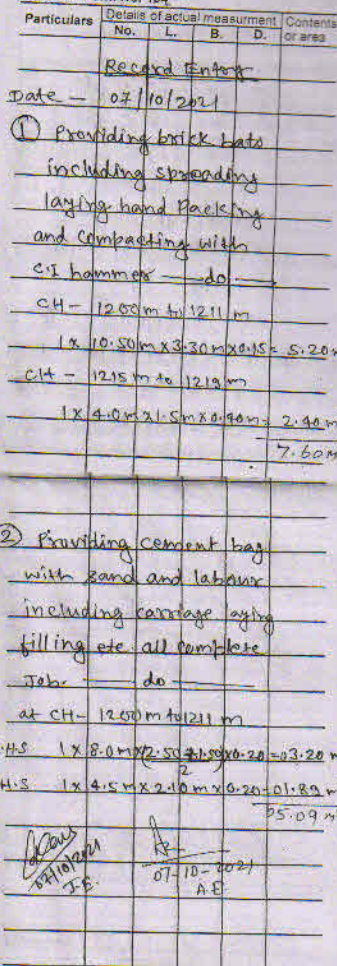 Particulars Details of actual measurment Contents or area
No. L. B. D.
Record Entry
Date - 07/10/2021
① Providing brick bats
including spreading
laying hand Packing
and Compacting with
C.I hammer — do —
CH - 1200m to 1211 m
1 x 10.50m x 3.30m x 0.15 = 5.20m
CH - 1215m to 1219m
1 x 4.0m x 1.5m x 0.40m = 2.40m
7.60m
② Providing cement bag
with sand and labour
including carriage laying
filling etc. all complete
Job. — do —
at CH - 1200m to 1211 m
H.S 1 x 8.0m x (2.50+1.50)/2 x 0.20 = 03.20m
H.S 1 x 4.5m x 2.10m x 0.20 = 01.89m
05.09m
07/10/2021
J.E.
07-10-2021
A.E